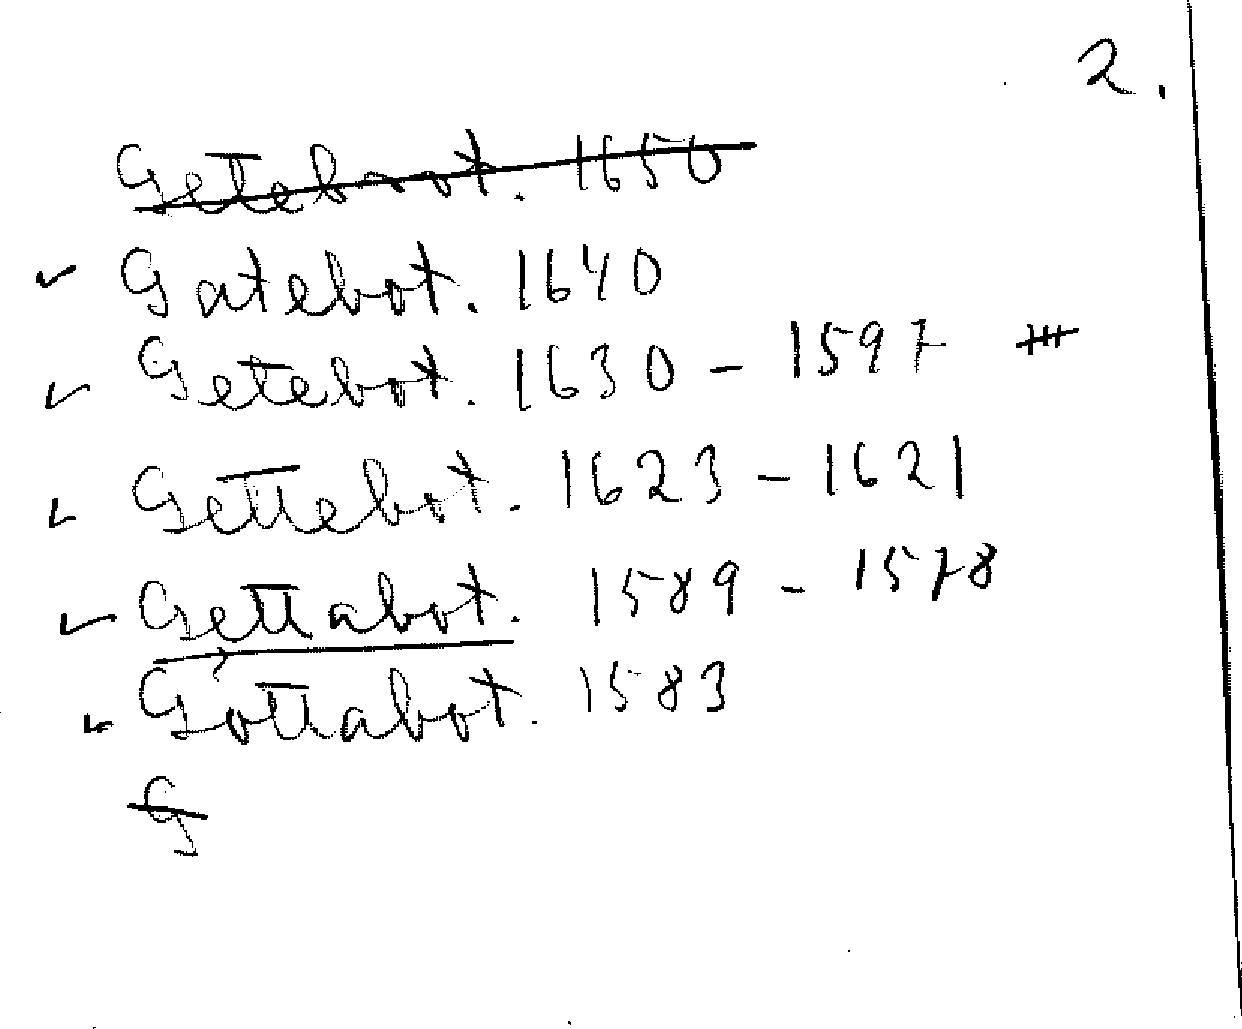 2.
Geteboot. 1650
✓ Gatebot. 1640
✓ Getebot. 1630 - 1597
✓ Gettebot. 1623 - 1621
✓ Gettabot. 1589 - 1578
✓ Gottabot. 1583
G